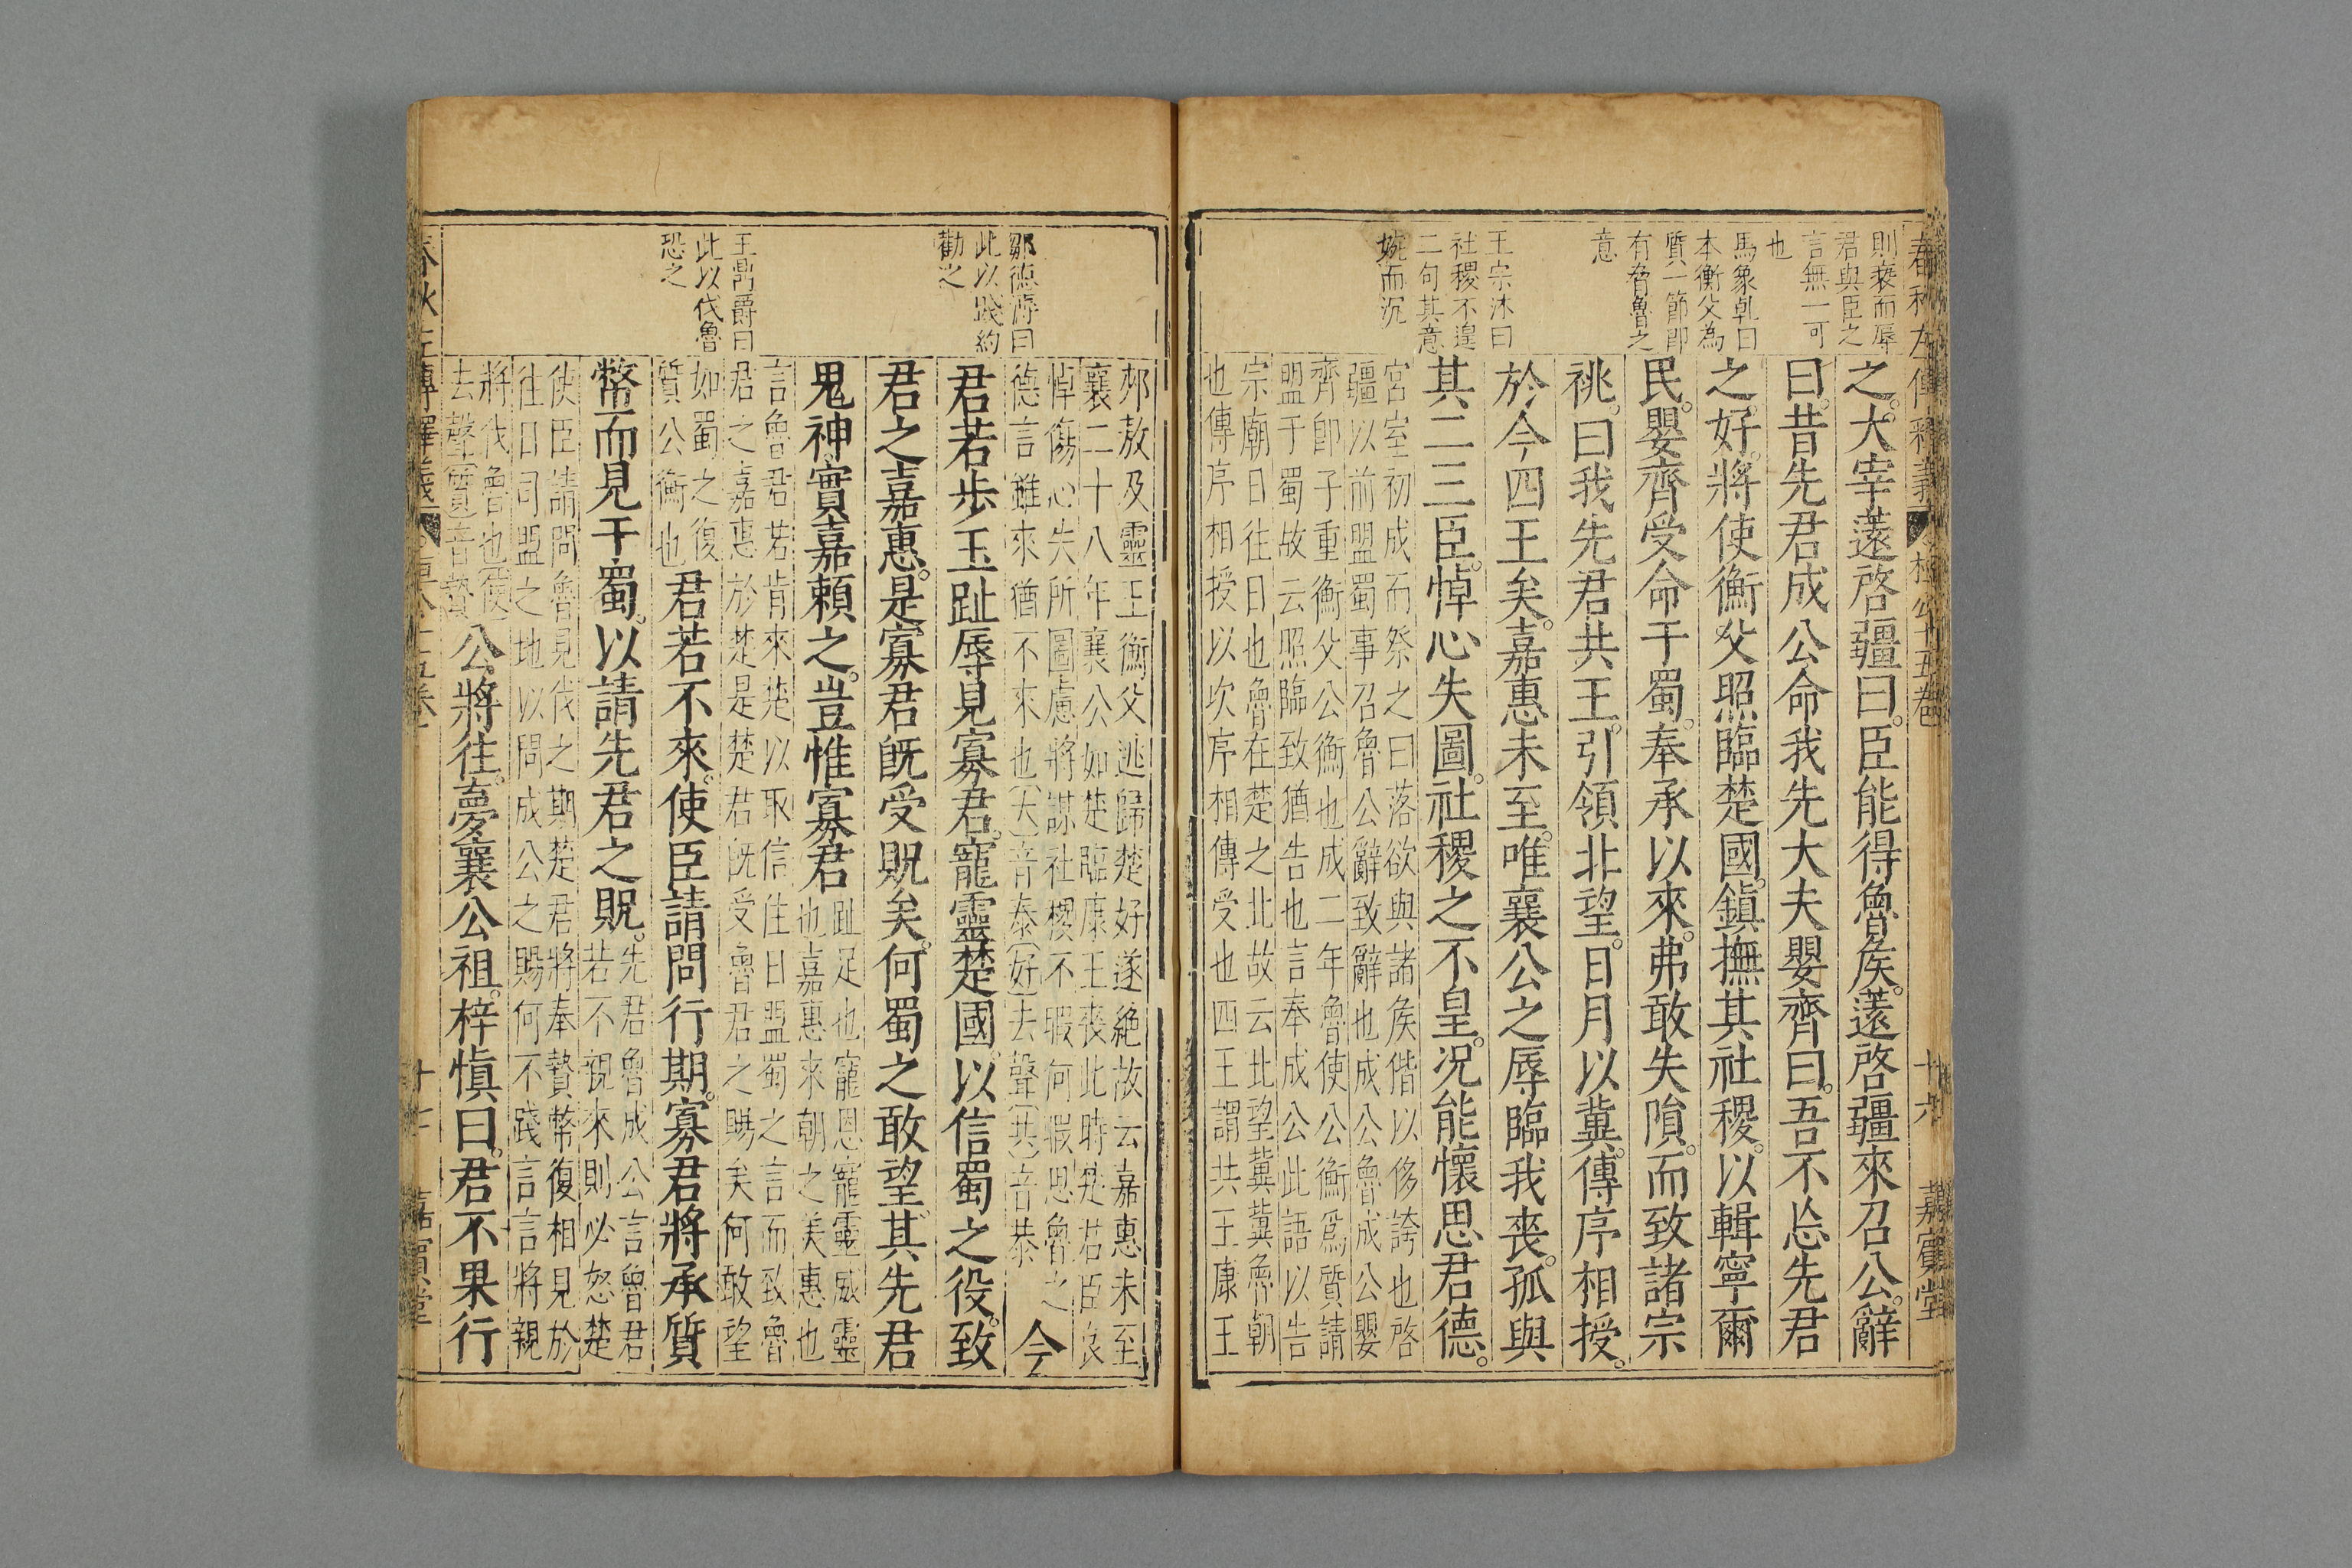 則褻而辱
君與臣之
言無一可
也
馬象乹曰
本衡父為
質一節即
有脅魯之
意
王宗沐曰
社稷不遑
二句其意
婉而沉
之大宰薳啓疆曰臣能得魯侯薳啓疆來召公辭
曰昔先君成公命我先大夫嬰齊曰吾不忘先君
之好將使衡父照臨楚國鎮撫其社稷以輯寧爾
民嬰齊受命于蜀奉承以來弗敢失隕而致諸宗
祧曰我先君共王引領北望日月以冀傳序相授
於今四王矣嘉惠未至唯襄公之辱臨我喪孤與
其二三臣悼心失圖社稷之不皇況能懷思君德
宮室初成而祭之曰落欲與諸侯偕以侈誇也啓
疆以前盟蜀事召魯公辭致辭也成公魯成公嬰
齊卽子重衡父公衡也成二年魯使公衡爲質請
盟于蜀故云照臨致猶告也言奉成公此語以告
宗廟日往日也魯在楚之北故云北望冀冀魯朝
也傳序相授以次序相傳受也四王謂共王康王
郟敖及靈王衡父逃歸楚好遂絶故云嘉惠未至
襄二十八年襄公如楚臨康王喪此時楚君臣哀
悼傷心失所圖慮將謀社稷不暇何暇思魯之
德言雖來猶不來也大音泰好去聲共音恭
今
君若步玉趾辱見寡君寵靈楚國以信蜀之役致
君之嘉惠是寡君旣受貺矣何蜀之敢望其先君
鬼神實嘉頼之豈惟寡君
趾足也寵恩寵靈威靈
也嘉惠來朝之美惠也
言魯君若肯來楚以取信往日盟蜀之言而致魯
君之嘉惠於楚是楚君旣受魯君之賜矣何敢望
如蜀之復
質公衡也
君若不來使臣請問行期寡君將承質
幣而見于蜀以請先君之貺
先君魯成公言魯君
若不親來則必怒楚
使臣請問魯見伐之期楚君將奉贄幣復相見於
往日同盟之地以問成公之賜何不踐言言將親
將伐魯也使
去聲質音贄
公將往夢襄公祖梓慎曰君不果行
鄒德溥曰
此以踐約
勸之
王鼎爵曰
此以伐魯
恐之